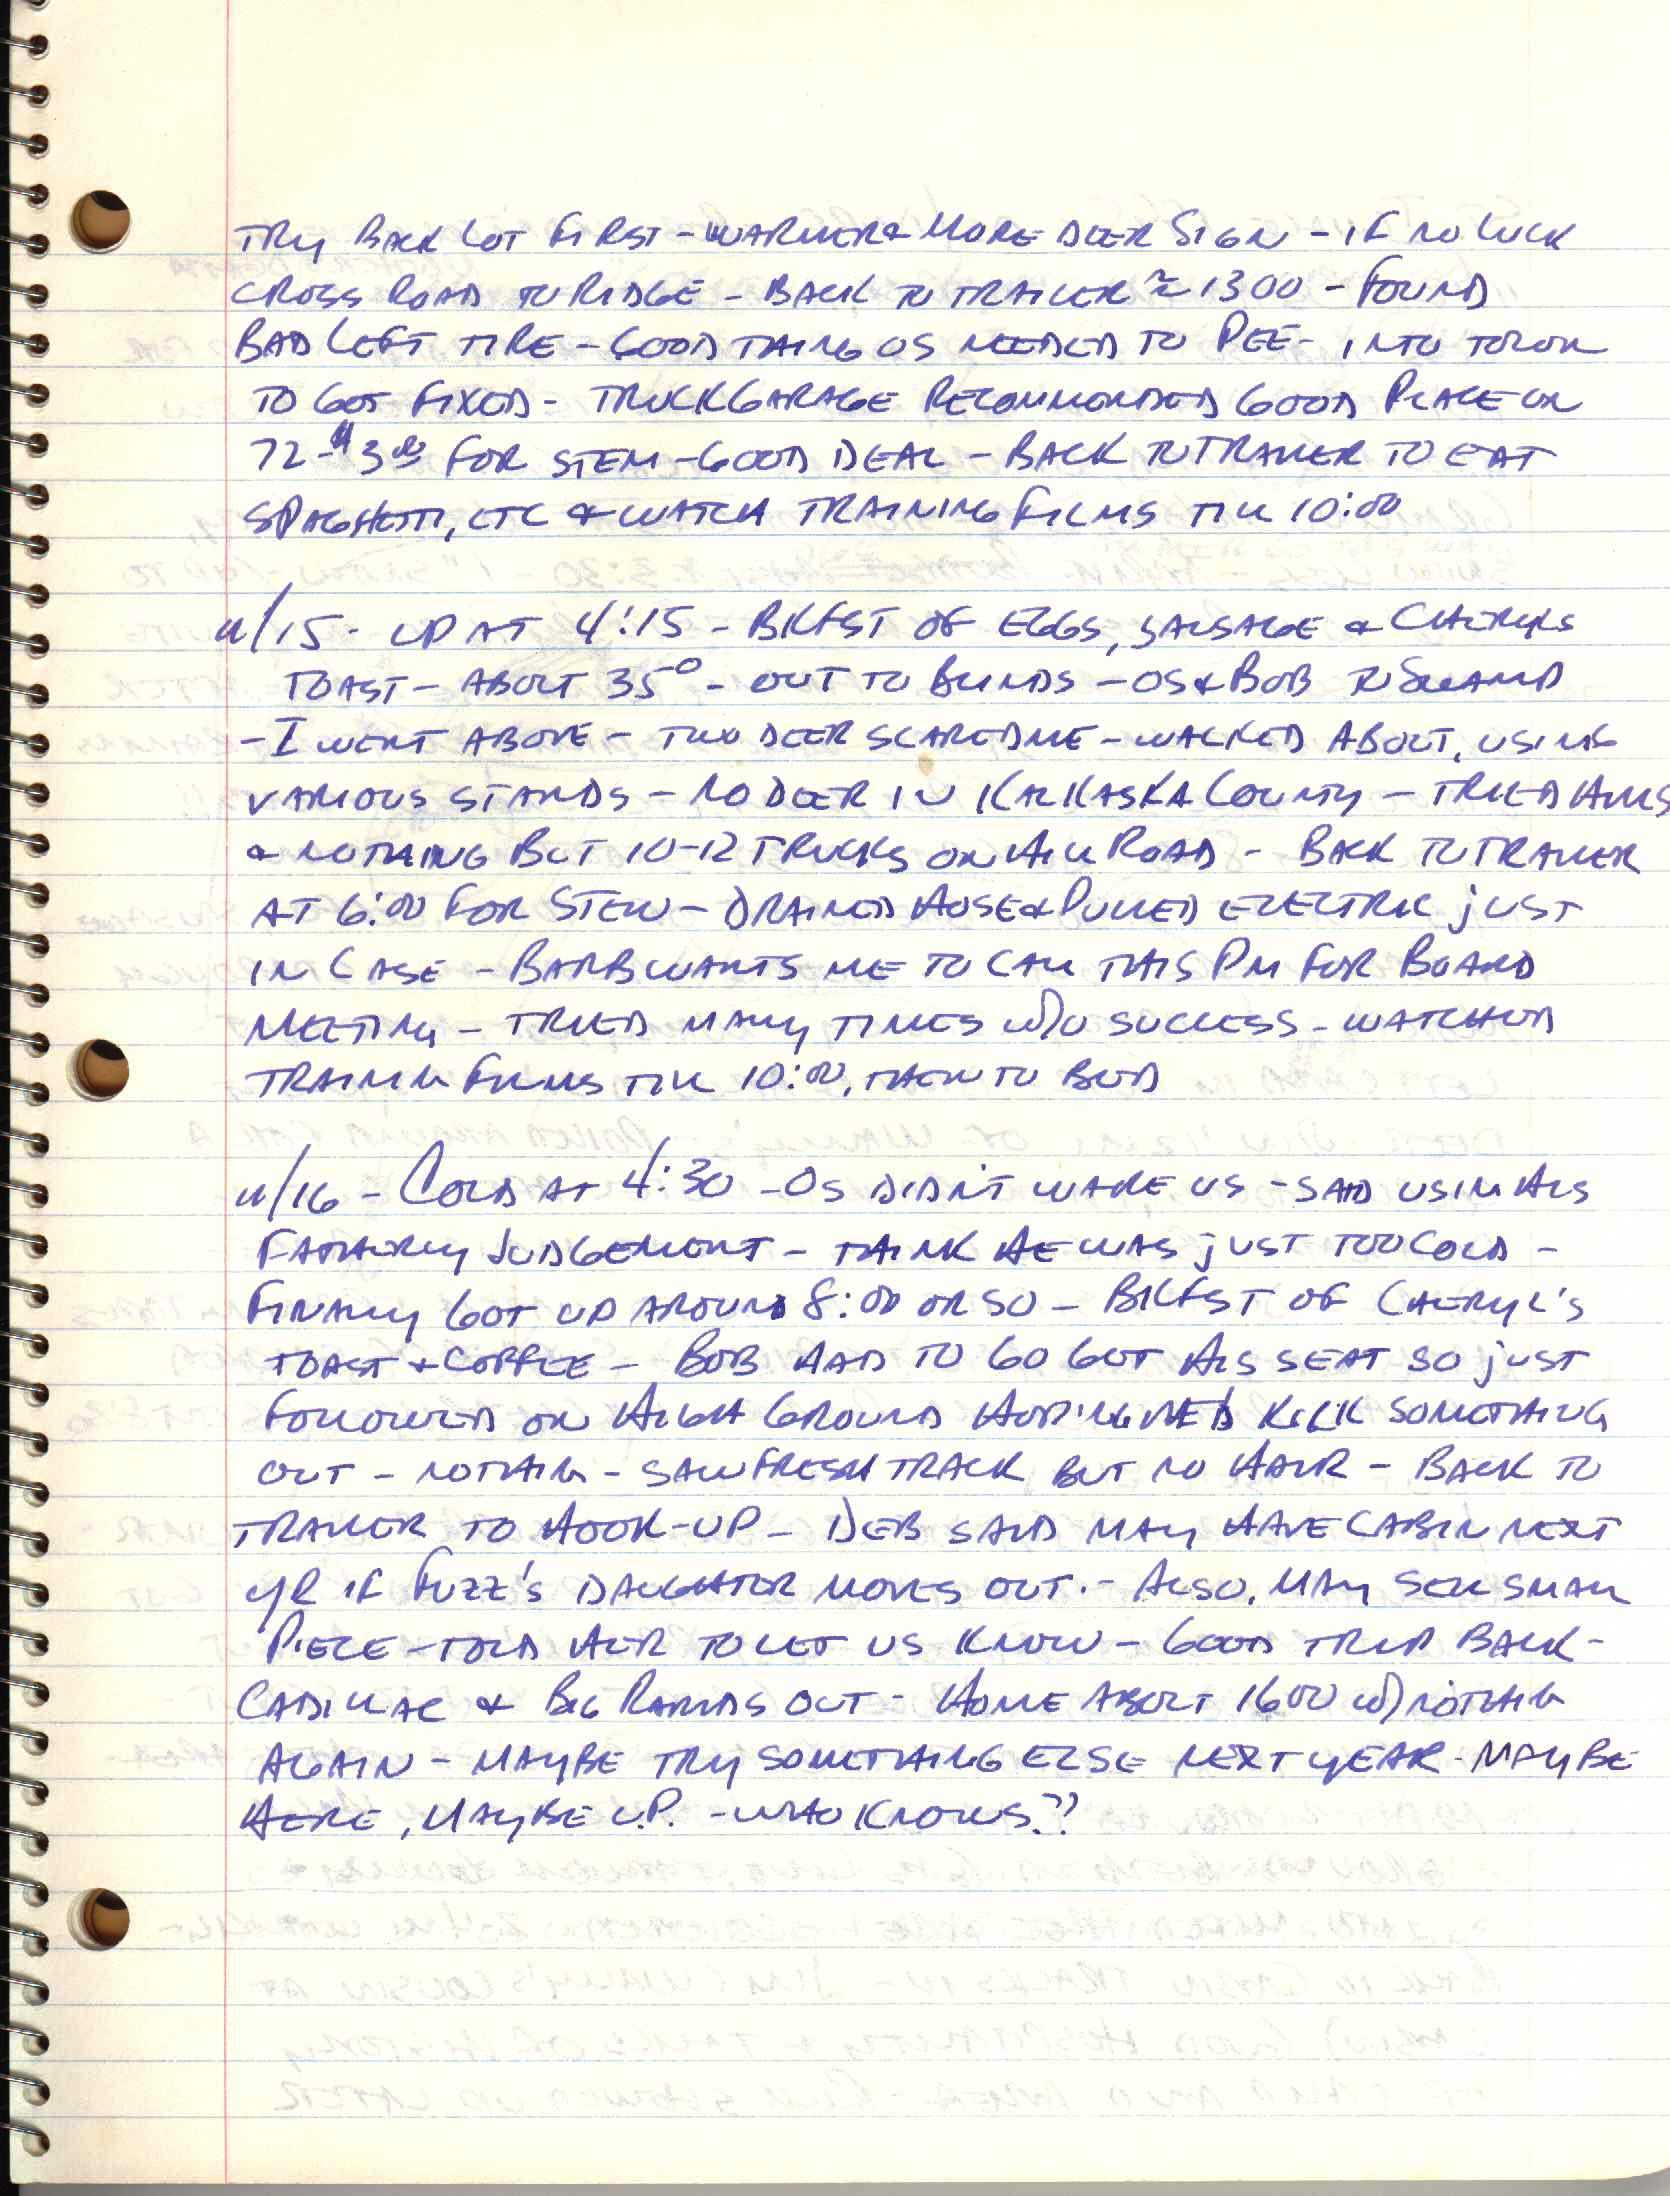 TRY BACK LOT FIRST - WARMER & MORE DEER SIGN - IF NO LUCK
CROSS ROAD TO RIDGE - BACK TO TRAILER ≈ 1300 - FOUND
BAD LEFT TIRE - GOOD THING OS NEEDED TO PEE - INTO TOWN
TO GET FIXED - TRUCK GARAGE RECOMMENDED GOOD PLACE ON
72 - $3.00 FOR STEM - GOOD DEAL - BACK TO TRAILER TO EAT
SPAGHETTI, ETC & WATCH TRAINING FILMS TILL 10:00
11/15 - UP AT 4:15 - BKFST OF EGGS, SAUSAGE & CHERYLS
TOAST - ABOUT 35° - OUT TO BLINDS - OS & BOB TO SWAMP
- I WENT ABOVE - TWO DEER SCARED ME - WALKED ABOUT, USING
VARIOUS STANDS - NO DEER IN KALKASKA COUNTY - TRIED HILLS
& NOTHING BUT 10-12 TRUCKS ON HILL ROAD - BACK TO TRAILER
AT 6:00 FOR STEW - DRAINED HOSE & PULLED ELECTRIC JUST
IN CASE - BARB WANTS ME TO CALL THIS PM FOR BOARD
MEETING - TRIED MANY TIMES W/O SUCCESS - WATCHED
TRAINING FILMS TILL 10:00, THEN TO BED
11/16 - COLD AT 4:30 - OS DIDN'T WAKE US - SAID USING HIS
FATHERLY JUDGEMENT - THINK HE WAS JUST TOO COLD -
FINALLY GOT UP AROUND 8:00 OR SO - BKFST OF CHERYL'S
TOAST & COFFEE - BOB HAD TO GO GET HIS SEAT SO JUST
FOLLOWED ON HIGH GROUND HOPING HE'D KICK SOMETHING
OUT - NOTHING - SAW FRESH TRACK BUT NO HAIR - BACK TO
TRAILER TO HOOK-UP - DEB SAID MAY HAVE CABIN NEXT
YR IF FUZZ'S DAUGHTER MOVES OUT. - ALSO, MAY SELL SMALL
PIECE - TOLD HER TO LET US KNOW - GOOD TRIP BACK -
CADILLAC & BIG RAPIDS OUT - HOME ABOUT 1600 W/NOTHING
AGAIN - MAYBE TRY SOMETHING ELSE NEXT YEAR - MAYBE
HERE, MAYBE U.P. - WHO KNOWS??